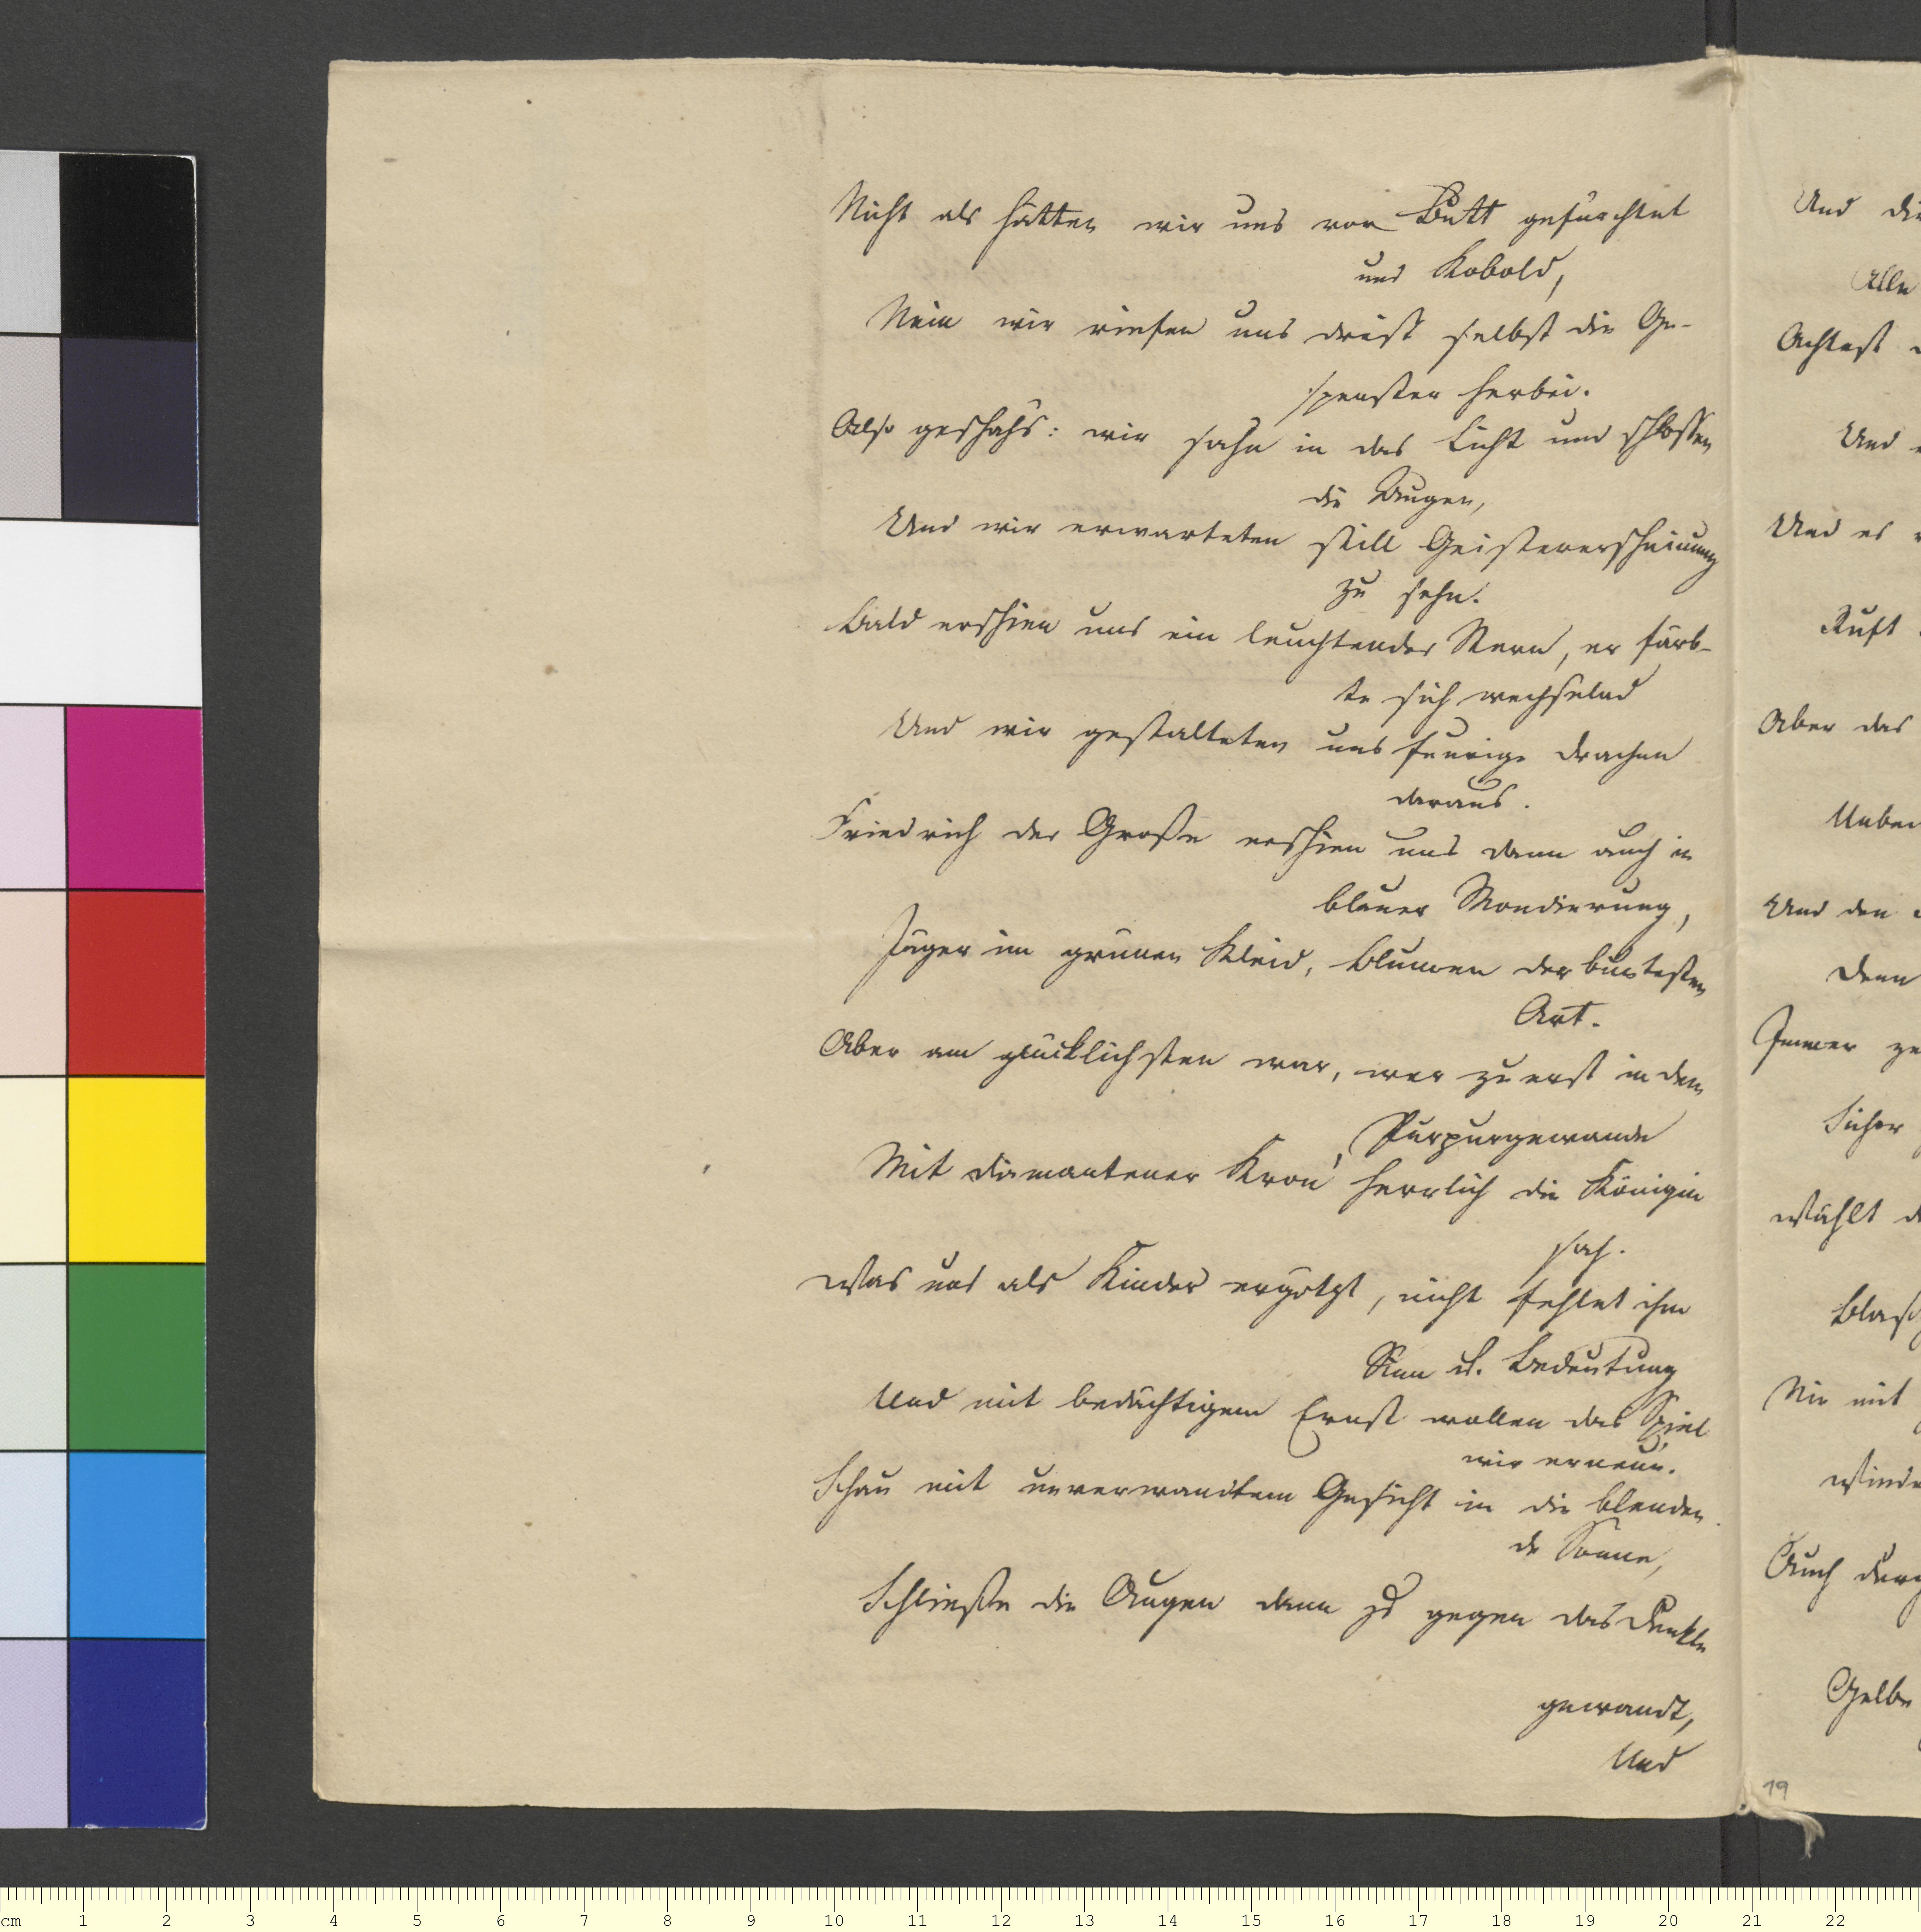 Nicht als hätten wir uns vor Butt gefürchtet
und Kobold,
Nein wir riefen uns dreist selbst die Ge-
spenster herbei.
Also geschah's: wir sahn in das Licht und schlossen
die Augen,
Und wir erwarteten still Geistererscheinung
zu sehn.
Bald erschien uns ein leuchtender Stern, er färb-
te sich wechselnd
Und wir gestalteten uns feurige Drachen
daraus.
Friedrich der Große erschien uns dann auch in
blauer Mondierung,
Jäger im grünen Kleid, Blumen der buntesten
Art.
Aber am glücklichsten war, wer zuerst in dem
Purpurgewande
Mit diamantener Kron' herrlich die Königin
sah.
Was uns als Kinder ergötzt, nicht fehlet ihm
Sinn u. Bedeutung
Und mit bedächtigem Ernst wollen das Spiel
wir erneun.
Schau mit unverwandtem Gesicht in die blenden-
de Sonne,
Schließe die Augen dann zu gegen das Dunkle
gewandt,
Und
Und die
Alle
Achtest
Und
Und es
Ruft
Aber das
Und den
Denn
Immer
Sicher
Wählt
Nie mit
Auch
Gelbe
19
cm 1 2 3 4 5 6 7 8 9 10 11 12 13 14 15 16 17 18 19 20 21 22